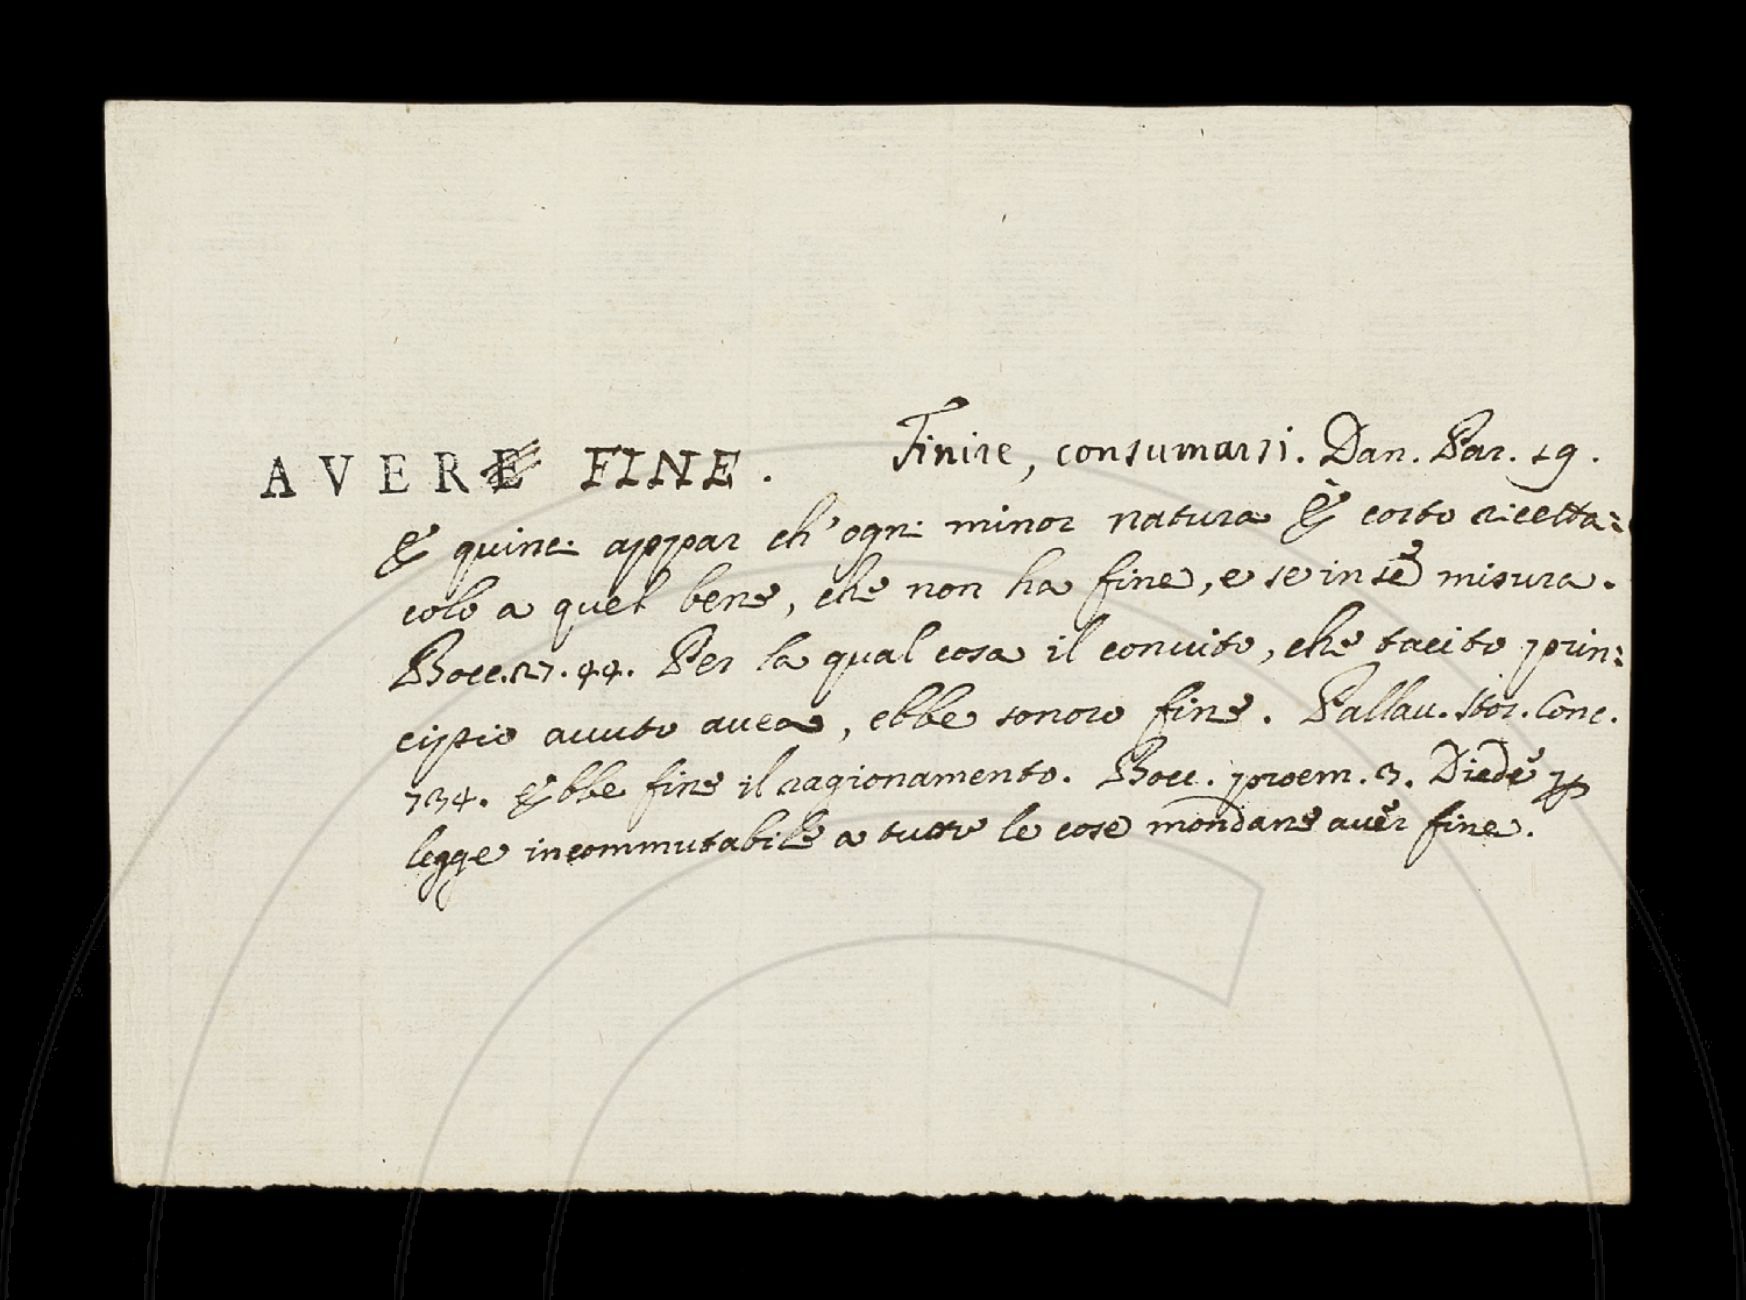 AVERE FINE. Finire, consumarsi. Dan. Par. 19.
E quinci appar ch'ogni minor natura È corto ricetta:
colo a quel bene, che non ha fine, e se in sè misura.
Bocc. 27. 44. Per la qual cosa il convito, che tacito prin:
cipio avuto avea, ebbe sonoro fine. Pallav. Stor. Conc.
734. Ebbe fine il ragionamento. Bocc. proem. 3. Diede ꝑ
legge incommutabile a tutte le cose mondane aver fine.